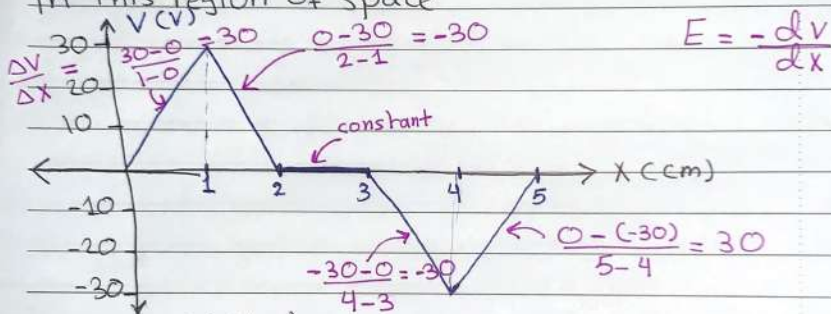 In this region of space
V (V)
30
ΔV/ΔX = (30-0)/(1-0) = 30
(0-30)/(2-1) = -30
E = -dv/dx
20
10
constant
1 2 3 4 5 X (cm)
-10
-20
(-30-0)/(4-3) = -30
(0-(-30))/(5-4) = 30
-30